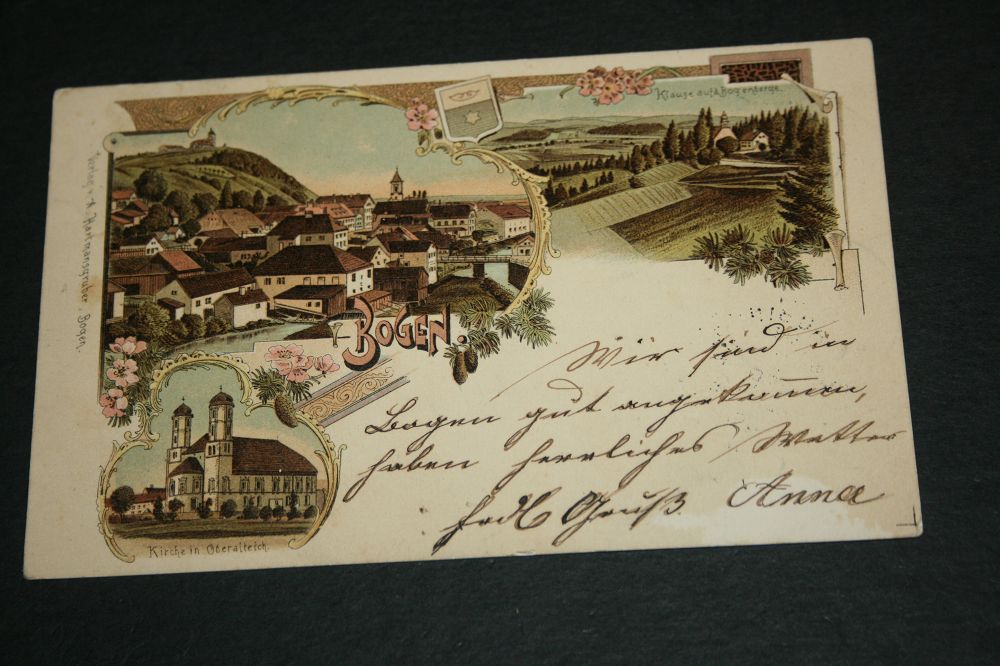 Klause auf d. Bogenberge.
Verlag v. A. Hartmannsgruber, Bogen.
BOGEN.
Wir sind in
Bogen gut angekom̄en,
haben herrliches Wetter
Frdl Gruß Anna
Kirche in Oberalteich.